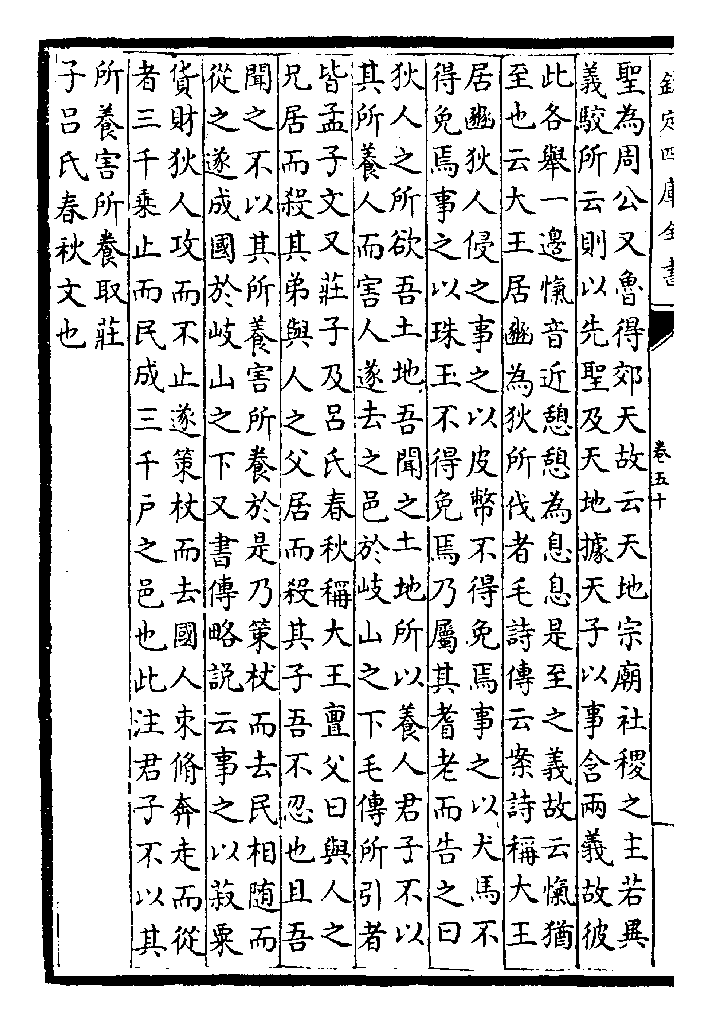 欽定四庫全書
卷五十
聖為周公又魯得郊天故云天地宗廟社稷之主若異
義駮所云則以先聖及天地據天子以事含兩義故彼
此各舉一邊愾音近憩憩為息息是至之義故云愾猶
至也云大王居豳為狄所伐者毛詩傳云案詩稱大王
居豳狄人侵之事之以皮幣不得免焉事之以犬馬不
得免焉事之以珠玉不得免焉乃屬其耆老而告之曰
狄人之所欲吾土地吾聞之土地所以養人君子不以
其所養人而害人遂去之邑於岐山之下毛傳所引者
皆孟子文又莊子及呂氏春秋稱大王亶父曰與人之
兄居而殺其弟與人之父居而殺其子吾不忍也且吾
聞之不以其所養害所養於是乃策杖而去民相随而
從之遂成國於岐山之下又書傳略說云事之以菽粟
貨財狄人攻而不止遂策杖而去國人束脩奔走而從
者三千乗止而民成三千戶之邑也此注君子不以其
所養害所養取莊
子呂氏春秋文也